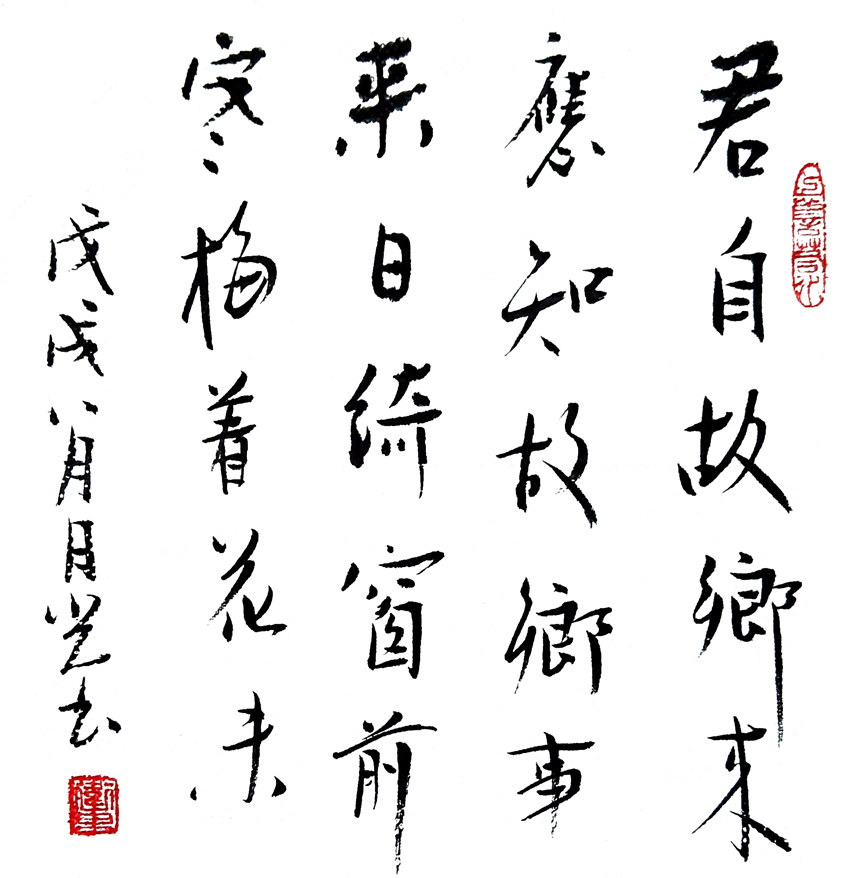 君自故鄉来
應知故鄉事
來日綺窗前
寒梅着花未
戊戌八月书